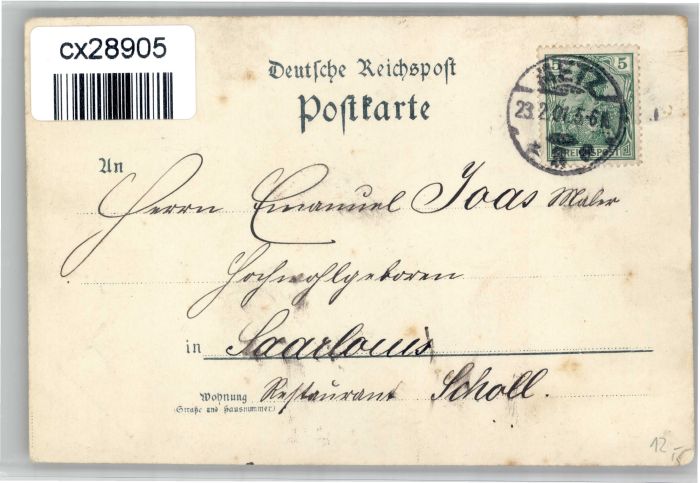 cx28905
Deutsche Reichspost
Postkarte
5 5
METZ
23.2.01. 5-6N.
REICHSPOST
An
Herrn Emanuel Joas Maler
Hochwohlgeboren
in Saarlouis
Wohnung Restaurant Scholl.
(Straße und Hausnummer)
12,-